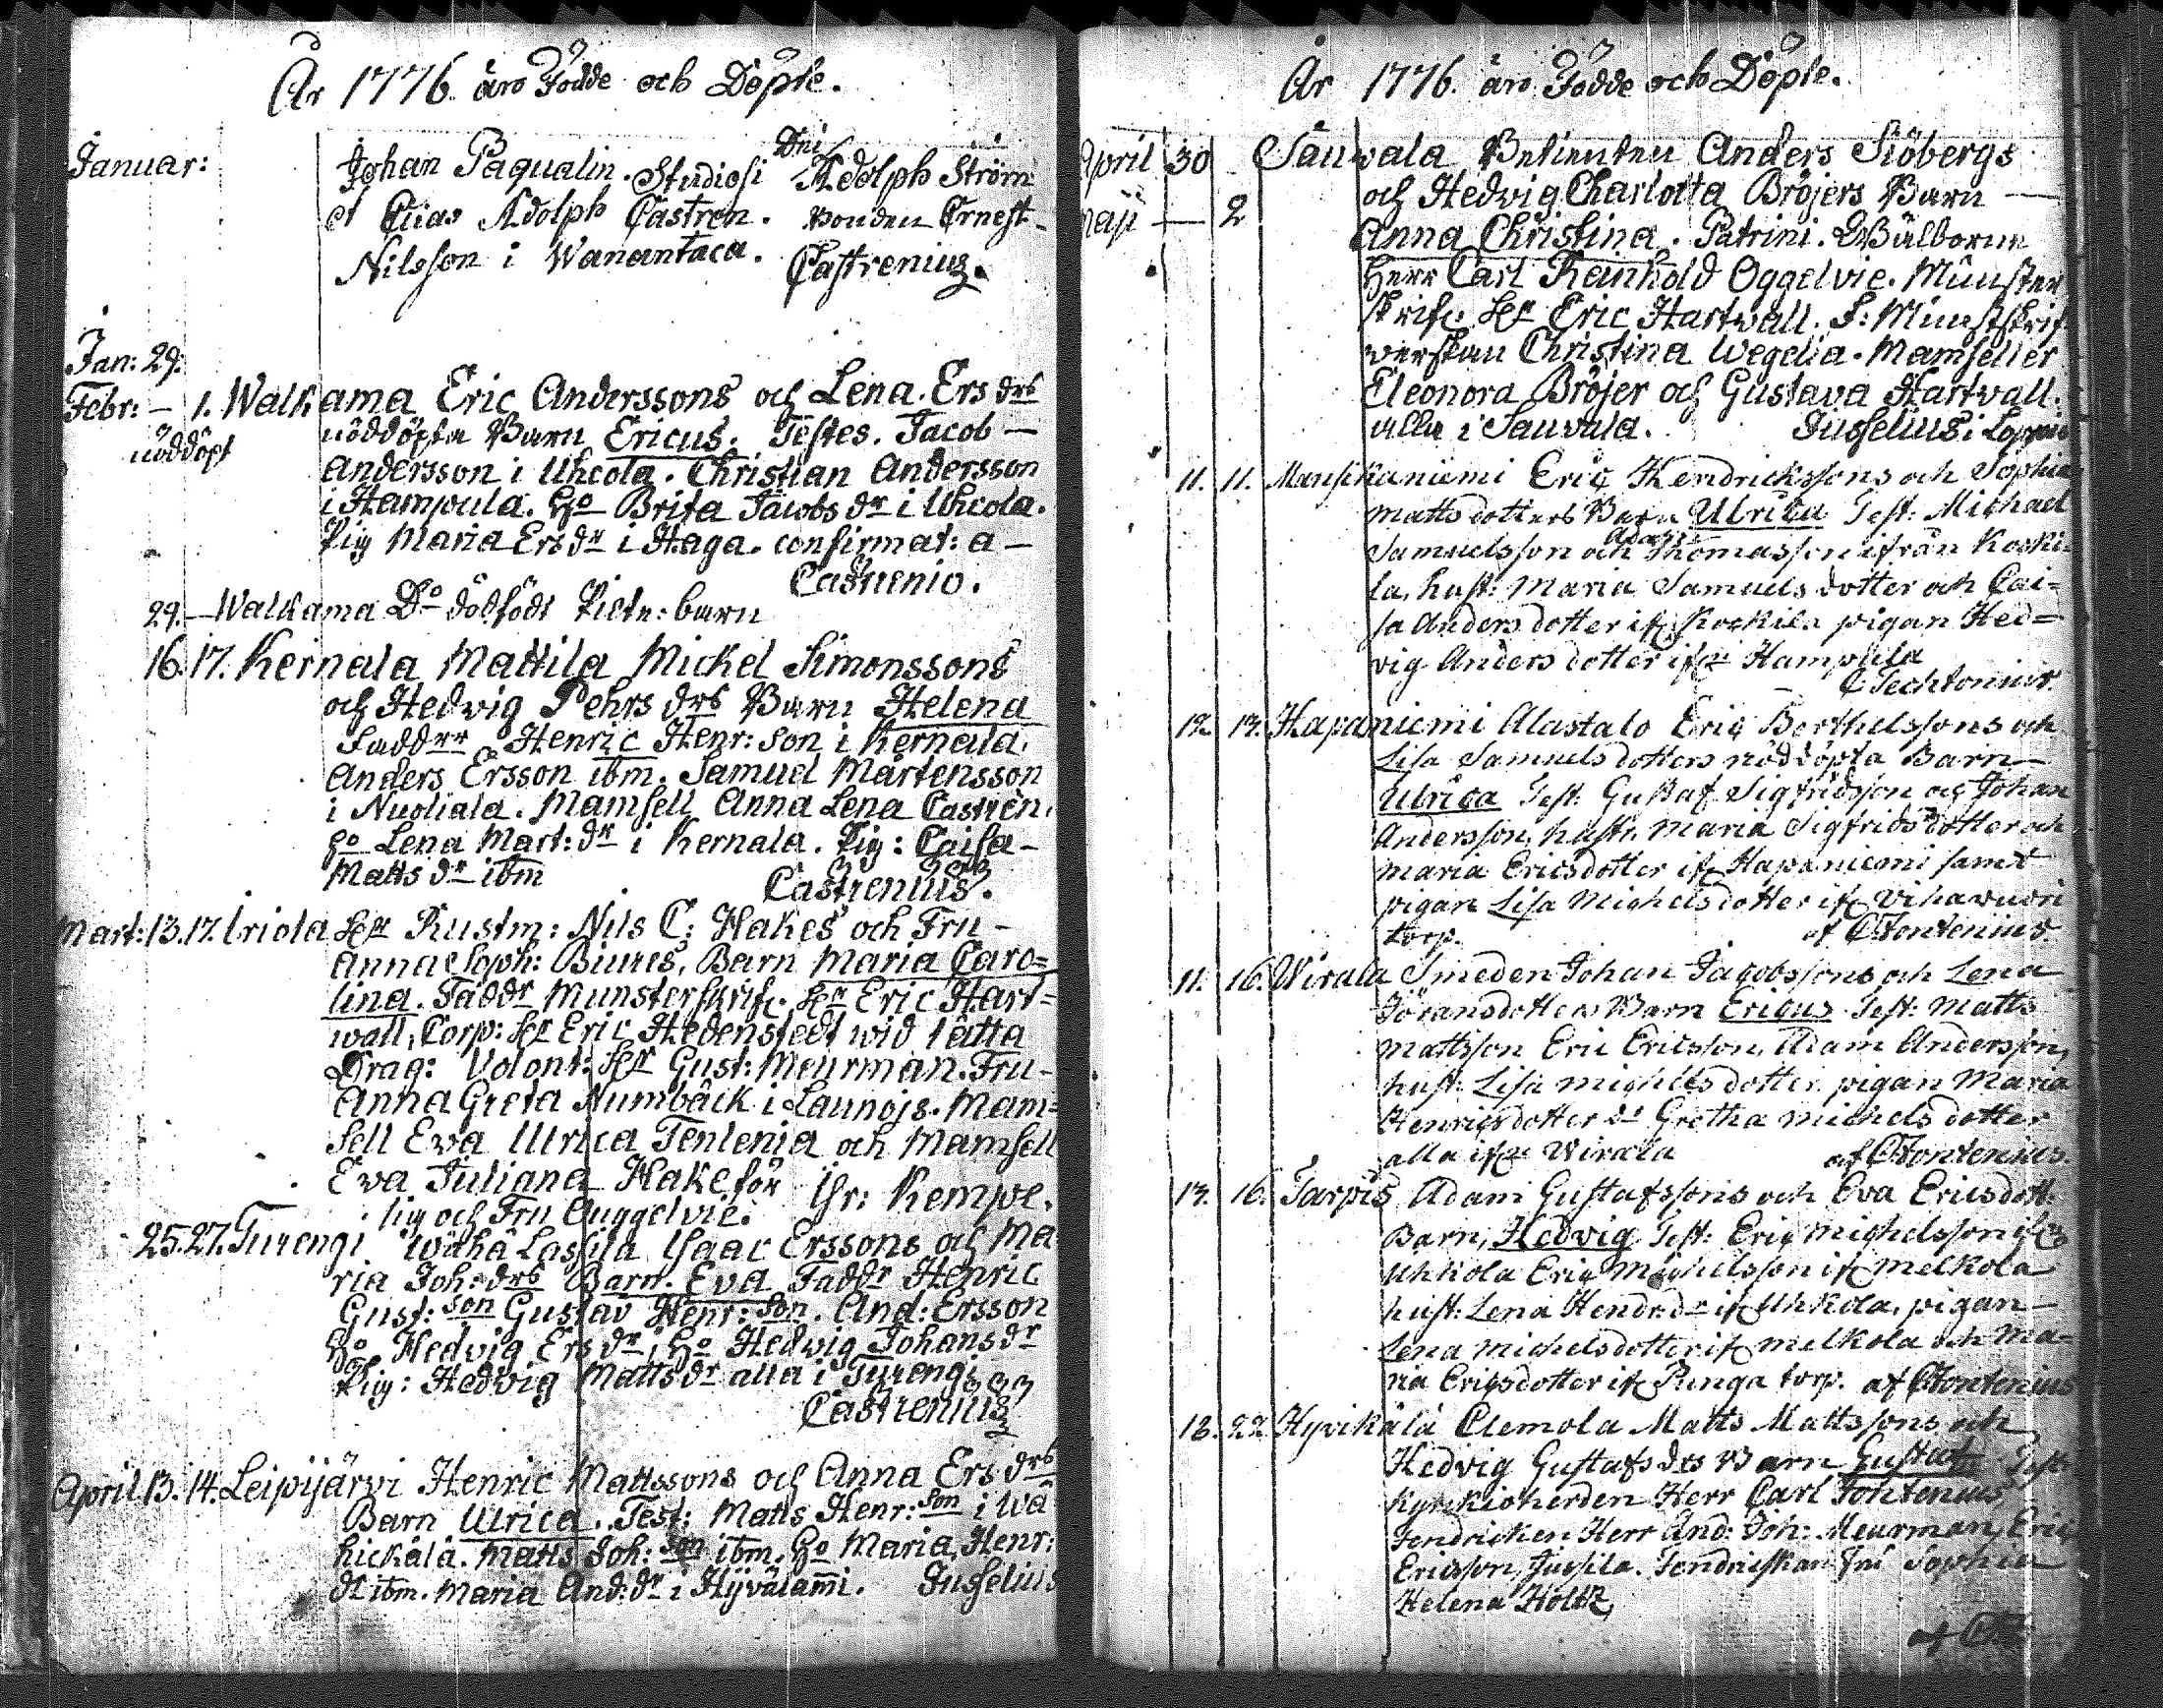 År 1776. äro Födde och Döpte.
Januar:
Johan Paqualin. Studiosi Dni Adolph Ström
et Elias Adolph Castren. bonden Ernest
Nilsson i Wanantaca. Castrenius.
Jan: 29.
Febr: — 1. Walkama Eric Anderssons och Lena Ers drs
nöddöpt
nöddöpta Barn Ericus. Testes. Jacob —
Andersson i Uhcola. Christian Andersson
i Hampula. Ho Brita Jacobs dr i Uhcola.
Pig Maria Ers dr i Haga. confirmat: a —
Castrenio.
29. — Walkama Do dödfödt barn
16. 17. Kernala Mattila Mickel Simonssons
och Hedvig Pehrs drs Barn Helena
Faddrr Henric Henr: son i Kernala.
Anders Ersson ibm. Samuel Mårtensson
i Nuoliala. Mamsell Anna Lena Castrèn.
Ho Lena Mart: dr i Kernala. Pig: Caisa —
Matts dr ibm Castrenius.
Mart: 13. 17. Iriola Hr Rustm: Nils C: Hakes och Fru —
Anna Soph: Biures, Barn Maria Caro=
lina. Faddr Munsterskrif. Hr Eric Hart=
wall, Corp: Hr Eric Hedenstedt wid lätta
Drag: Volont: Hr Gust: Meurman. Fru —
Anna Greta Numbäck i Launois. Mam=
sell Eva Ulrica Tenlenia och Mamsell
Eva Juliana Hake för
sig och Fru Auggelvie. Isr: Kempe.
25. 27. Turengi Wähä Lassila Isaac Erssons och Ma
ria Joh: drs Barn. Eva Faddr Henric
Gust: son Gustav Henr: son. And: Ersson
Ho Hedvig Ers dr, Ho Hedwig Johans dr
Pig: Hedvig Matts dr alla i Turengi
Castrenius
April 13. 14. Leipijärvi Henric Mattssons och Anna Ers drs
Barn Ulrica. Test: Matts Henr: son i Wä
hickälä. Matts Joh: son ibm. Ho Maria, Henr:
dr ibm. Maria And: dr i Hyvälammi. Jusselius
År 1776. äro Födde och Döpte.
April 30 Sauvala Betienten Anders Siöbergs
och Hedvig Charlotta Bröjers Barn —
Maji — 2
Anna Christina. Patrini. Wälborne
Herr Carl Reinhold Oggelvie. Münster
skrif. Hr Eric Hartwall. F: Münstskrif
verskan Christina Wegelia. Mamseller
Eleonora Bröjer och Gustava Hartvall.
alla i Sauvala. Jusselius i Loppis
11. 11. Mansikaniemi Eric Hendrickssons och Sophia
Matts dotters Barn Ulrica Test: Michael
Samuelsson och Adam Thomasson ifrån Koski=
la, hust: Maria Samuels dotter och Cai=
sa Anders dotter ifr. Koskila pigan Hed=
vig Anders dotter ifr. Hampula
12. 13. Hapaniemi Alastalo Eric Berthelssons och
Lisa Samuels dotters nöddöpta Barn —
Ulrica Test: Gustaf Sigfridsson och Johan
Andersson, hustr. Maria Sigfrids dotter och
Maria Ericsdotter ifr. Hapaniemi samt
pigan Lisa Michels dotter ifr. Vihavuori
torp. af C Fontenius.
11. 16. Wirala Smeden Johan Jacobssons och Lena
Jöransdotters Barn Ericus Test: Matts
Mattsson Eric Ericsson, Adam Andersson,
hust: Lisa Michelsdotter pigan Maria
Henricsdotter do Gretha Michels dotter
alla ifr. Wirala af C Fontenius.
13. 16. Tarpis Adam Gustafssons och Eva Ericsdott.
Barn, Hedvig Test: Eric Michelsson ifr
Uhkola Eric Michelsson ifr Melkola
hust: Lena Hendr. dr ifr Uhkola, pigan —
Lena Michelsdotter ifr Melkola och Ma=
ria Ericsdotter ifr Punga torp. af C Fontenius
18. 22. Hyvikälä Clemola Matts Mattssons och
Hedvig Gustafs drs Barn Gustaf Test:
Kyrckioherden Herr Carl Fontenius,
Fendricken Herr And: Joh: Meurman, Eric
Ericsson, Jussila. Fendrickskan Fru Sophia
Helena Holtz,
af